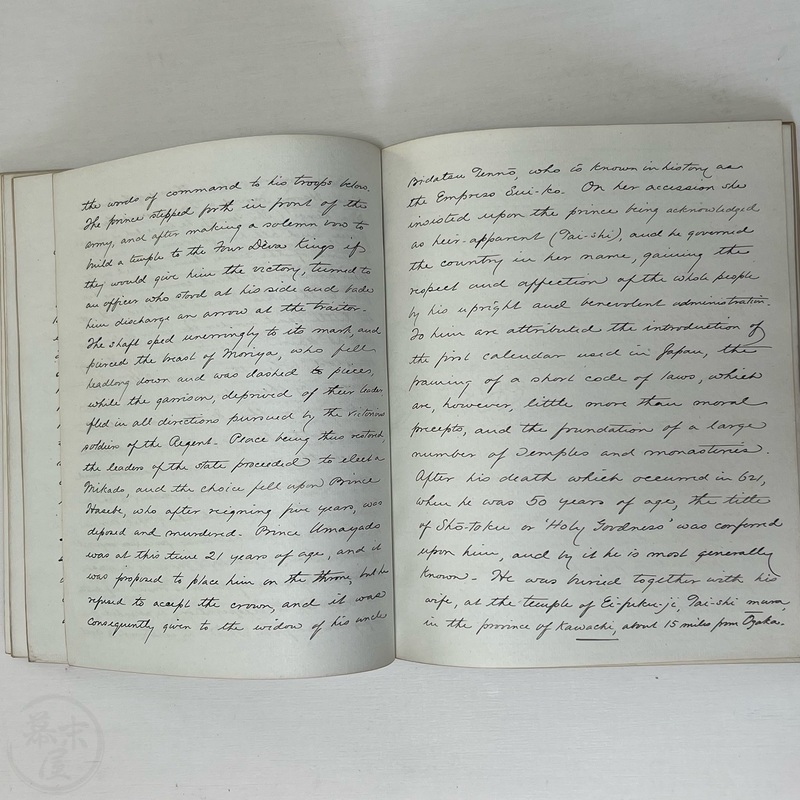 the words of command to his troops below.
The prince stepped forth in front of the
army, and after making a solemn vow to
build a temple to the Four Dêva Kings if
they would give him the victory, turned to
an officer who stood at his side and bade
him discharge an arrow at the traitor.
The shaft sped unerringly to its mark, and
pierced the breast of Moriya, who fell
headlong down and was dashed to pieces,
while the garrison, deprived of their leader
fled in all directions pursued by the victorious
soldiers of the Regent. Peace being thus restored,
the leaders of the state proceeded to elect a
Mikado, and the choice fell upon Prince
Hasebe, who after reigning five years, was
deposed and murdered. Prince Umayado
was at this time 21 years of age, and it
was proposed to place him on the throne, but he
refused to accept the crown, and it was
consequently given to the widow of his uncle
Bidatsu Tennô, who is known in history as
the Empress Sui-ko. On her accession she
insisted upon the prince being acknowledged
as heir-apparent (Tai-shi), and he governed
the country in her name, gaining the
respect and affection of the whole people
by his upright and benevolent administration.
To him are attributed the introduction of
the first calendar used in Japan, the
framing of a short code of laws, which
are, however, little more than moral
precepts, and the foundation of a large
number of temples and monasteries.
After his death which occurred in 621,
when he was 50 years of age, the title
of Shô-toku or 'Holy Goodness' was conferred
upon him, and by it he is most generally
known. He was buried together with his
wife, at the temple of Ei-fuku-ji, Tai-shi mura,
in the province of Kawachi, about 15 miles from Ozaka.
幕末屋